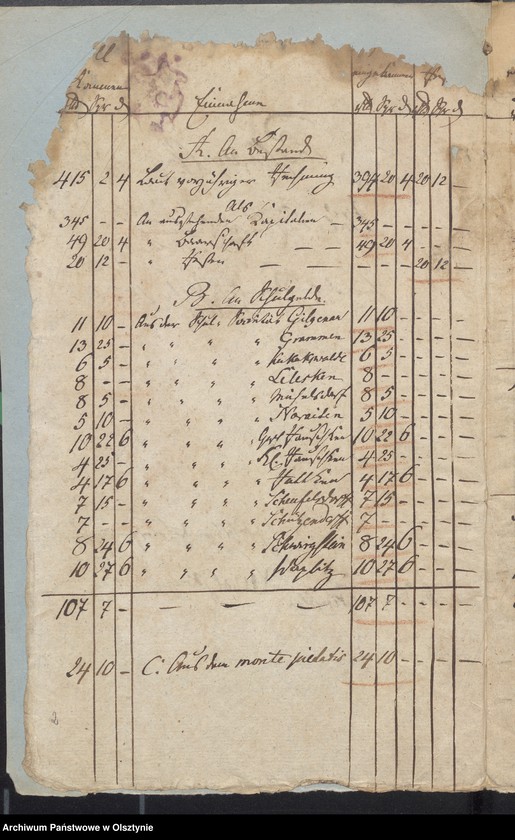 11
Rth Sgr d Einnahme Rth Sgr d Rth Sgr d
A. An Bestand
415 2 4 Laut vorjähriger Rechnung 394 20 4 20 12 -
Als
345 - - An ausstehenden Kapitalien - 345 - -
49 20 4 " Baarschaft - 49 20 4
20 12 - " Resten - - - - - 20 12 -
B. An Schulgelde.
11 10 - Aus der Schul Societät Gilgenau 11 10 -
13 25 - " " " " Grammen 13 25 -
6 5 - " " " " 6 5 -
8 - - " " " " Lelesken 8 - -
8 5 - " " " " Michelsdorf 8 5 -
5 10 - " " " " Narajthen 5 10 -
10 22 6 " " " " Groß Rauschken 10 22 6
4 25 - " " " " Kl. Rauschken 4 25 -
4 17 6 " " " " 4 17 6
7 15 - " " " " Scheufelsdorff 7 15 -
7 - - " " " " Schützendorff 7 - -
8 24 6 " " " " Schwirgstein 8 24 6
10 27 6 " " " " Waplitz 10 27 6
107 7 - - - - 107 7 - - - -
24 10 - C. Aus dem monte pietatis 24 10 - - - -
2
Archiwum Państwowe w Olsztynie